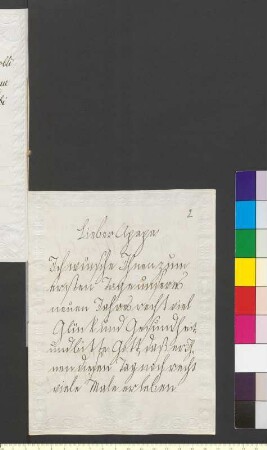 2
Lieber Papa
Ich wünsche Ihnen zum
ersten Tage unseres
neuen Jahres recht viel
Glück und Gesundheit
und bitte Gott, daß er Ih-
nen diesen Tag noch recht
viele Male erleben